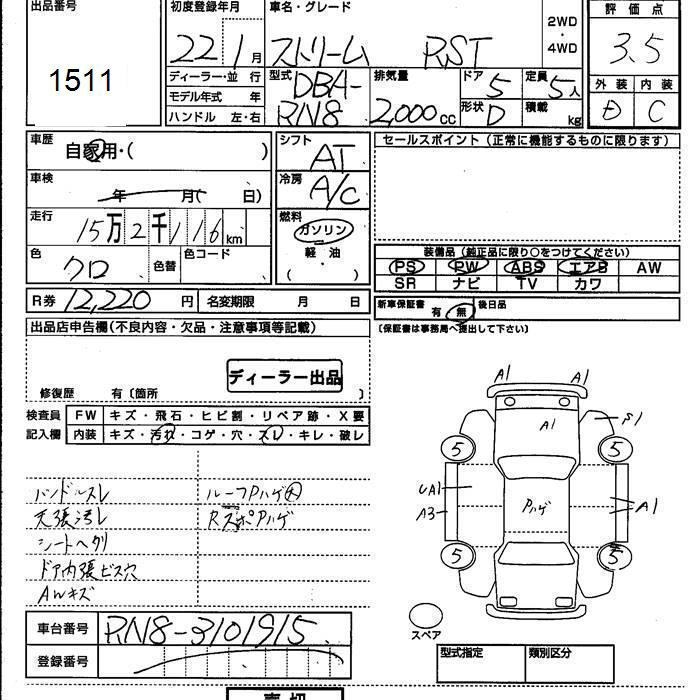 出品番号 初度登録年月 車名・グレード 2WD・4WD 評価点
1511 22 1月 ストリーム RST 3.5
ディーラー・並行 型式 DBA-RN8 排気量 2,000cc ドア 5 定員 5人 外装 D 内装 C
モデル年式 年
ハンドル 左・右 形状 D 積載 kg
車歴 自家用・( ) シフト AT セールスポイント(正常に機能するものに限ります)
車検 年 月( 日) 冷房 A/C
走行 15万2千116km 燃料 ガソリン
軽油
( ・ )
色 クロ 色替 色コード
装備品(純正品に限り○をつけてください)
PS PW ABS エアB AW
SR ナビ TV カワ
R券 12,220円 名変期限 月 日
新車保証書 有 無 後日品
(保証書は事務局へ提出して下さい)
出品店申告欄(不良内容・欠品・注意事項等記載)
ディーラー出品
修復歴 有〔箇所 〕
検査員記入欄 FW キズ・飛石・ヒビ割・リペア跡・X要
内装 キズ・汚れ・コゲ・穴・スレ・キレ・破レ
ハンドルスレ ルーフPハゲ大
天張汚レ RスポPハゲ
シートヘタリ
ドア内張ビス穴
AWキズ
A1 A1
A1 S1
5 5
UA1
A3 Pハゲ A1
5 5
スペア
車台番号 RN8-3101915
登録番号
型式指定 類別区分